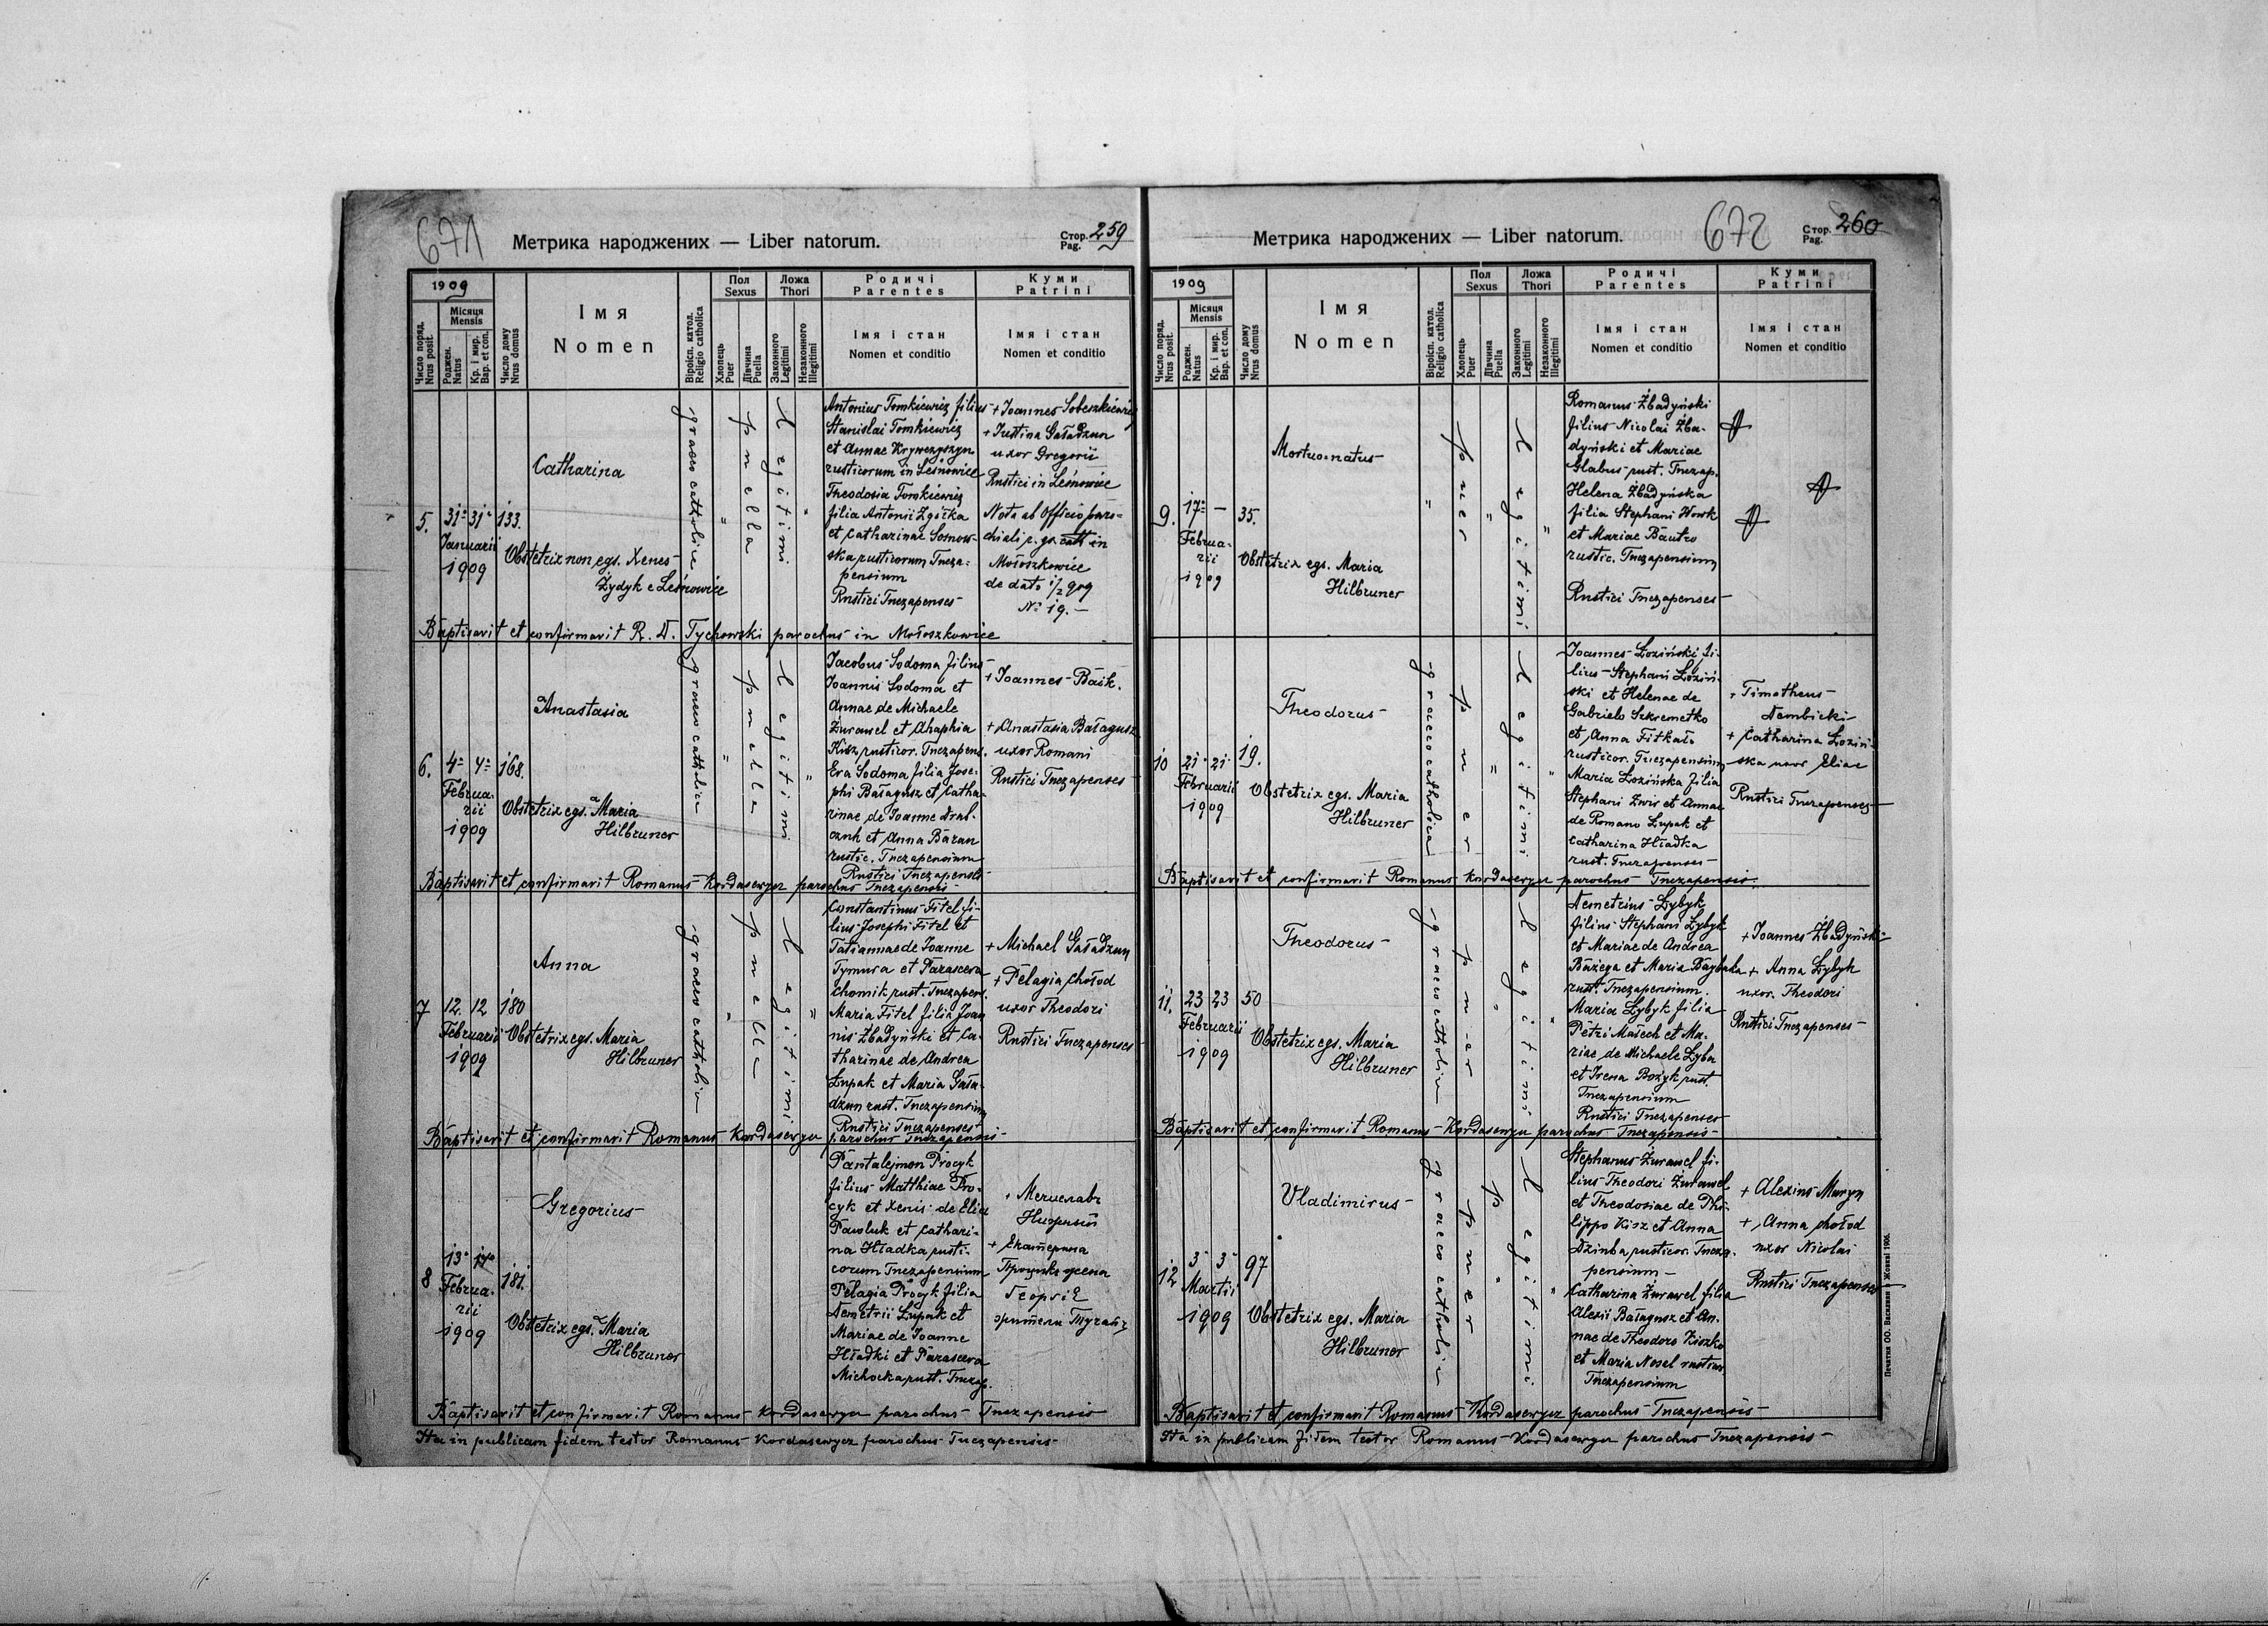 671
Метрика народжених — Liber natorum.
Стор. 259
Pag.
1909
Число поряд.
Nrus posit.
Місяця
Mensis
Роджен.
Natus
Кр. і мир.
Bap. et con.
Число дому
Nrus domus
Імя
Nomen
Віроісп. катол.
Religio catholica
Пол
Sexus
Хлопець
Puer
Дївчина
Puella
Ложа
Thori
Законного
Legitimi
Незаконного
Illegitimi
Родичі
Parentes
Імя і стан
Nomen et conditio
Куми
Patrini
Імя і стан
Nomen et conditio
5.
31 31
Januarii
1909
133.
Catharina
Obstetrix non egs. Xenes
Żydyk e Leśnowice
graeco catholica
puella
Legitimi
Antonius Tomkiewicz filius
Stanislai Tomkiewicz
et Annae Krywczyszyn
rusticorum in Leśnowice
Theodosia Tomkiewicz
filia Antonii Zgirka
et Catharinae Sosnow-
ska rusticorum Tucza-
pensium
Rustici Tuczapenses
+ Joannes Sobeszkiewicz
+ Justina Gaładzun
uxor Gregorii
Rustici in Leśnowice
Nota ab Officio paro-
chiali r. gr. cath in
Mołoszkowice
de dato 1/2 909
No 19. —
Baptisavit et confirmavit R. D. Tychowski parochus in Mołoszkowice
6.
4 4
Februa-
rii
1909
168.
Anastasia
Obstetrix egs. Maria
Hilbruner
graeco catholica
puella
Legitimi
Jacobus Sodoma filius
Joannis Sodoma et
Annae de Michaele
Żurawel et Ahaphia
Kisz rusticor. Tuczapens.
Eva Sodoma filia Jose-
phi Bałagusz et Catha-
rinae de Joanne Drab-
czuh et Anna Baran
rustic. Tuczapensium
Rustici Tuczapenses
+ Joannes Baik.
+ Anastasia Bałagusz
uxor Romani
Rustici Tuczapenses
Baptisavit et confirmavit Romanus Kordasewycz parochus Tuczapensis
7
12. 12
Februarii
1909
180
Anna
Obstetrix egs. Maria
Hilbruner
graeco catholica
puella
Legitimi
Constantinus Fitel fi-
lius Josephi Fitel et
Tatiannae de Joanne
Tymura et Parasceva
Chomik rust. Tuczapens.
Maria Fitel filia Joan
nis Żbadyński et Ca-
tharinae de Andrea
Łupak et Maria Gała-
dzun rust. Tuczapensium
Rustici Tuczapenses
+ Michael Gaładzun
+ Pelagia Chołod
uxor Theodori
Rustici Tuczapenses
Baptisavit et confirmavit Romanus Kordasewycz parochus Tuczapensis
8
13
Februa-
rii
1909
181.
Gregorius
Obstetrix egs. Maria
Hilbruner
Pantalejmon Procyk
filius Matthiae Pro-
cyk et Xenis de Elia
Pawluk et Cathari-
na Hładka rusti-
corum Tuczapensium
Pelagia Procyk filia
Demetrii Łupak et
Mariae de Joanne
Hładki et Parasceva
Michocka rust. Tuczap.
+ Екатерина
жена
Георгія
Baptisavit et confirmavit Romanus Kordasewycz parochus Tuczapensis
Ita in publicam fidem testor Romanus Kordasewycz parochus Tuczapensis
672
Метрика народжених — Liber natorum.
Стор. 260
Pag.
1909
Число поряд.
Nrus posit.
Місяця
Mensis
Роджен.
Natus
Кр. і мир.
Bap. et con.
Число дому
Nrus domus
Імя
Nomen
Віроісп. катол.
Religio catholica
Пол
Sexus
Хлопець
Puer
Дївчина
Puella
Ложа
Thori
Законного
Legitimi
Незаконного
Illegitimi
Родичі
Parentes
Імя і стан
Nomen et conditio
Куми
Patrini
Імя і стан
Nomen et conditio
9.
17 —
Februa-
rii
1909
35.
Mortuo-natus
Obstetrix egs. Maria
Hilbruner
puer
Legitimi
Romanus Żbadyński
filius Nicolai Żba-
dyński et Mariae
Glabus rust. Tuczap.
Helena Żbadyńska
filia Stephani Wowk
et Mariae Bautro
rustic. Tuczapensium
Rustici Tuczapenses
10
21 21
Februarii
1909
19.
Theodorus
Obstetrix egs. Maria
Hilbruner
graeco catholica
puer
Legitimi
Joannes Łoziński fi-
lius Stephani Łoziń-
ski et Helenae de
Gabrielo Szkremetko
et Anna Fitkało
rusticor. Tuczapensium
Maria Łozińska filia
Stephani Zwir et Annae
de Romano Łupak et
Catharina Hładka
rust. Tuczapenses
+ Timotheus
Dembicki
+ Catharina Łoziń-
ska uxor Eliae
Rustici Tuczapenses
Baptisavit et confirmavit Romanus Kordasewycz parochus Tuczapensis.
11.
23 23
Februarii
1909
50
Theodorus
Obstetrix egs. Maria
Hilbruner
graeco catholica
puer
Legitimi
Demetrius Łybyk
filius Stephani Łybyk
et Mariae de Andrea
Bażega et Maria Baybała
rust. Tuczapensium.
Maria Łybyk filia
Petri Małech et Ma-
riae de Michaele Łyba
et Irena Bożyk rust.
Tuczapensium
Rustici Tuczapenses
+ Joannes Żbadyński
+ Anna Łybyk
uxor Theodori
Rustici Tuczapenses
Baptisavit et confirmavit Romanus Kordasewycz parochus Tuczapensis
12
3 3
Martii
1909
97
Vladimirus
Obstetrix egs. Maria
Hilbruner
graeco catholica
puer
Legitimi
Stephanus Żurawel fi-
lius Theodori Żurawel
et Theodosiae de Phi-
lippo Kisz et Anna
Dziuba rusticor. Tucza-
pensium
Catharina Żurawel filia
Alexii Bałagusz et An-
nae de Theodoro Kiszko
et Maria Nosel rustior.
Tuczapensium
+ Alexius Maryn
+ Anna Chołod
uxor Nicolai
Rustici Tuczapenses
Baptisavit et confirmavit Romanus Kordasewycz parochus Tuczapensis
Ita in publicam fidem testor Romanus Kordasewycz parochus Tuczapensis
Печатня ОО. Василиян в Жовкві 1906.